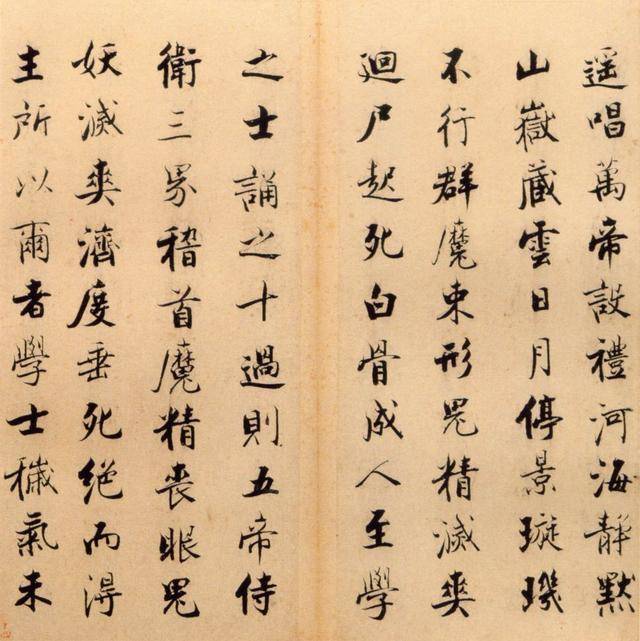 遥唱萬帝設禮河海靜默
山嶽藏雲日月停景璇璣
不行群魔束形鬼精滅爽
廻尸起死白骨成人至學
之士誦之十過則五帝侍
衛三界稽首魔精喪眼鬼
妖滅爽濟度垂死絕而得
生所以爾者學士穢氣未